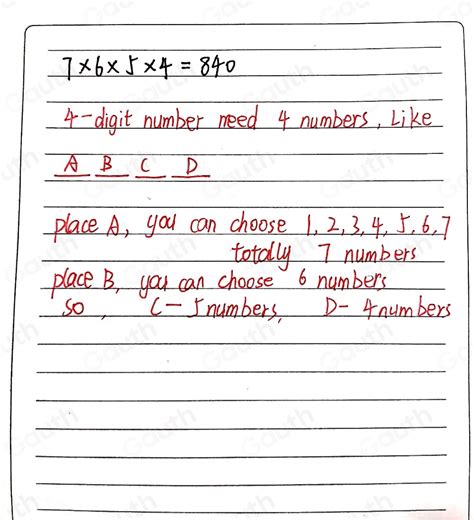 7×6×5×4=840
4-digit number need 4 numbers, Like
A B C D
place A, you can choose 1,2,3,4,5,6,7
totally 7 numbers
place B, you can choose 6 numbers
so, C-5numbers, D-4numbers